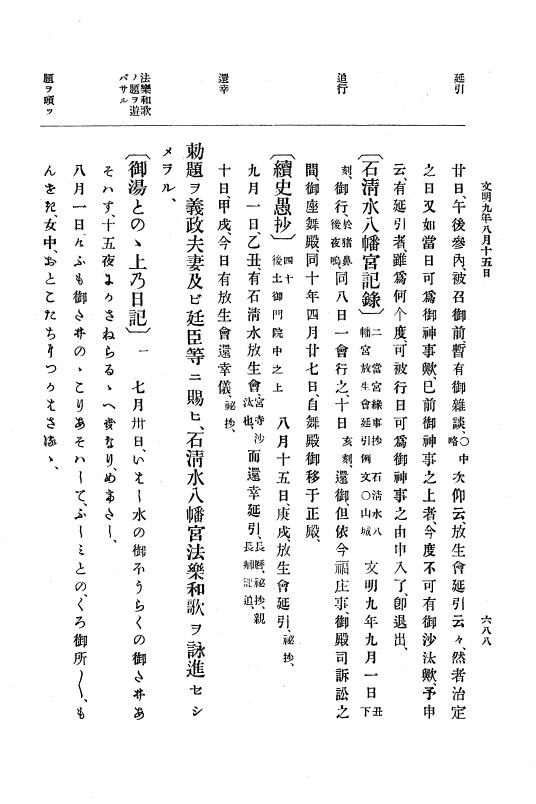 文明九年八月十五日
六八八
延引
追行
還幸
法樂和歌
ノ題ヲ遊
バサル
題ヲ頒ツ
廿日、午後參內、被召御前、暫有御雜談、〇中略次仰云、放生會延引云々、然者治定
之日又如當日可爲御神事歟、已前御神事之上者、今度不可有御沙汰歟、予申
云、有延引者、雖爲何个度、可被行日可爲御神事之由申入了、卽退出、
〔石淸水八幡宮記錄〕二 當宮緣事抄 石淸水八幡宮放生會延引例文〇山城 文明九年九月一日丑下
刻、御行、於猪鼻後夜鳴、同八日一會行之、十日亥刻、還御、但依今福庄事、御殿司訴訟之
間、御座舞殿、同十年四月廿七日、自舞殿御移于正殿、
〔續史愚抄〕四十 後土御門院中之上 八月十五日、庚戌、放生會延引、祕抄、
九月一日、乙丑、有石淸水放生會、宮寺沙汰也、而還幸延引、長曆、祕抄、親長卿記追、
十日、甲戌、今日有放生會還幸儀、祕抄、
勅題ヲ義政夫妻及ビ廷臣等ニ賜ヒ、石淸水八幡宮法樂和歌ヲ詠進セシ
メラル、
〔御湯とのゝ上乃日記〕一 七月卅日、いはし水の御ほうらくの御さ井あ
そハす、十五夜よりかさねらるゝへきなり、めてたし、
八月一日、けふも御さ井のゝこりあそハして、ふしミとの、くろ御所〱、も
んせき、女中、おとこたちりつかはさるゝ、